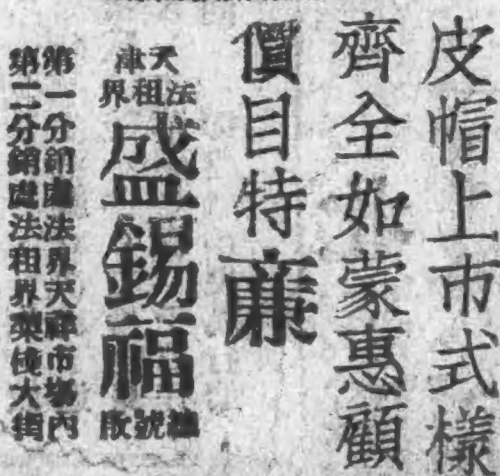 皮帽上市式樣
齊全如蒙惠顧
價目特廉
天津
法租界
盛錫福
總號啟
第一分銷處法界天祥市場內
第二分銷處法租界梨棧大街